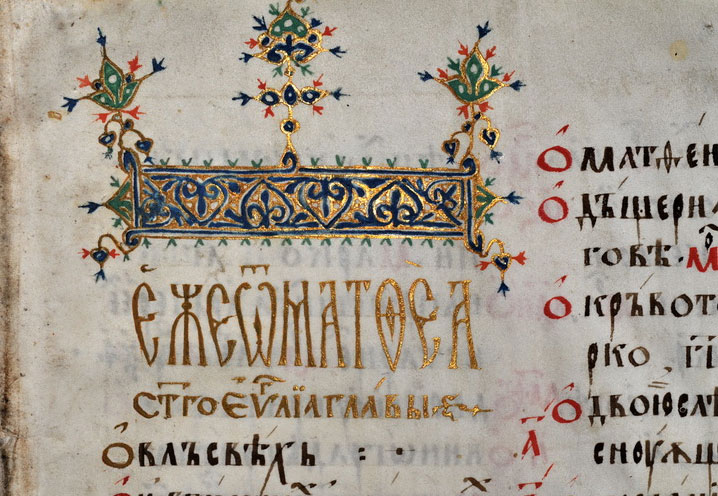 ЕЖЕѾМАТѲЕА
СТ҃ГО ЕѴ҃ЛІА ГЛАВЫ
О ВЛЪСВѢХЬ
О МАТѲЕИ
О ДЪЩЕРИ
ГОВѢ · М
О КРЪВОТ
РКО
О ДВОЮ СЛѢ
СНОУѦЩ